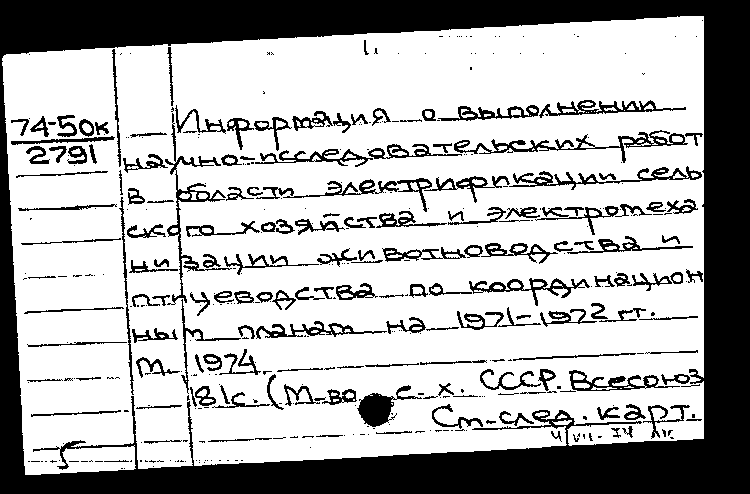 74-50к
2791
Информация о выполнении
научно-исследовательских работ
в области электрификации сель-
ского хозяйства и электромеха-
низации животноводства и
птицеводства по координацион
ным планам на 1971-1972 гг.
М. 1974.
181с. (М-во с.-х. СССР. Всесоюз
См-след. карт.
5